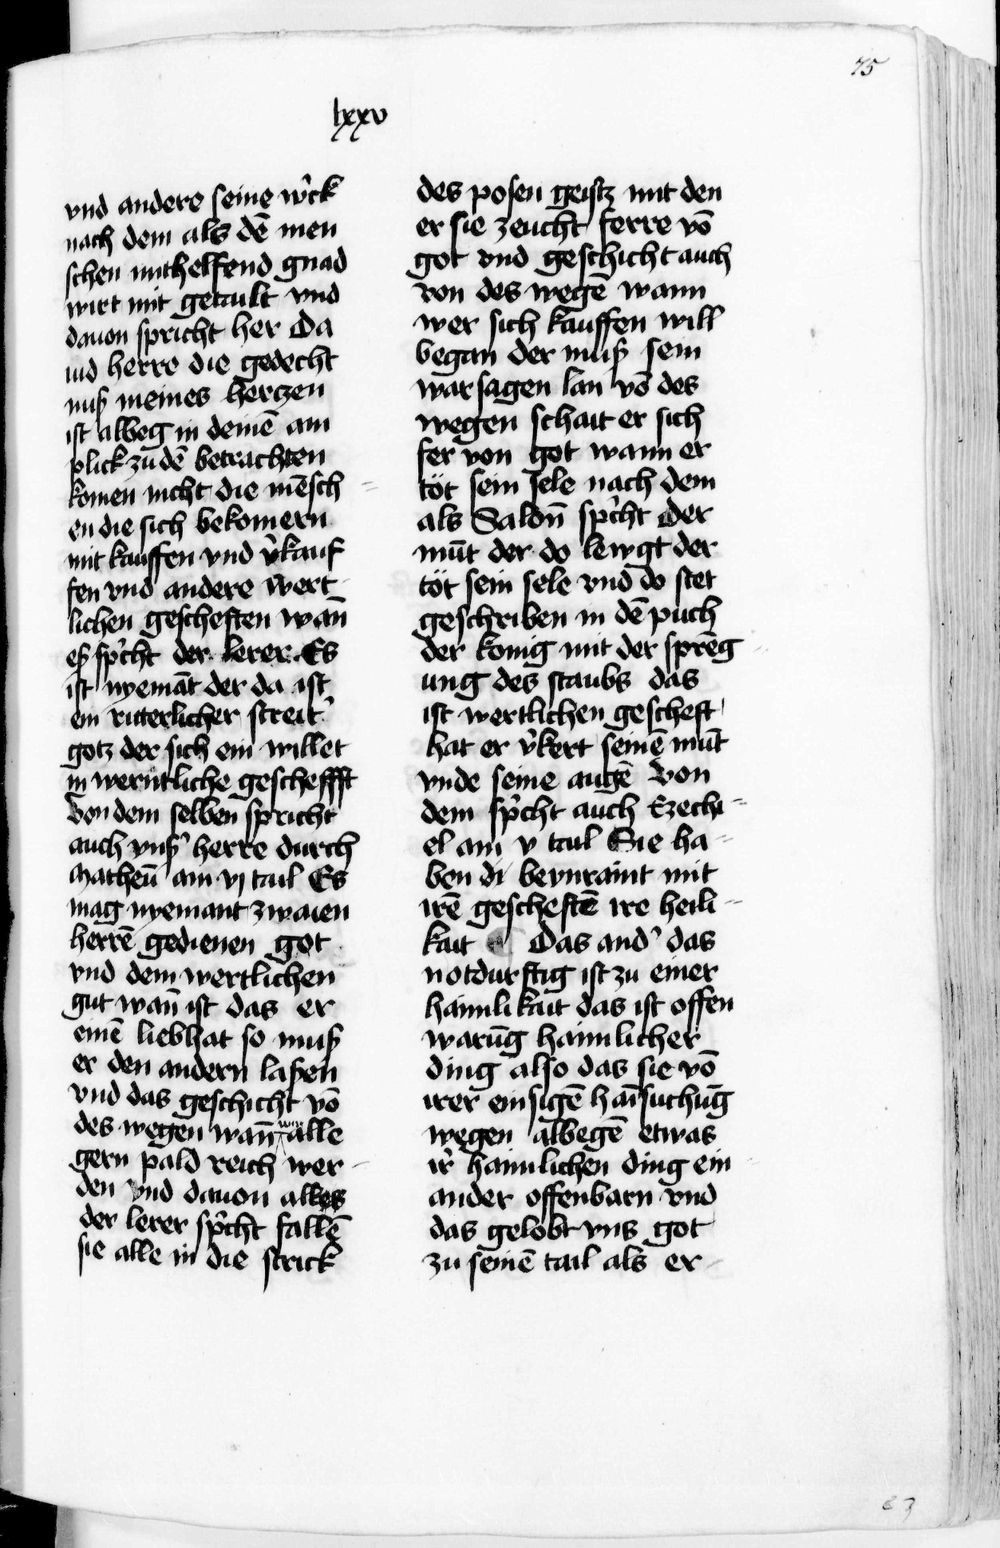 75
lxxv
vnd andere seine w̓ck
nach dem als dē men
schen mithelfend gnad
wirt mit getailt vnd
dauon spricht her Da
uid herre die gedecht
nuß meines hertzen
ist albeg in deinē an
plick zu dē betrachten
komen nicht die mēsch
en die sich bekomern
mit kauffen vnd v̓kauf
fen vnd andere wert
lichen gescheften wan̄
eß sp̓cht der lerer Es
ist nyemāt der da ist
ein ritterlicher streit̓
gotz der sich ein willet
in werntliche gescheffft
Von dem selben spricht
auch vnß̓ herre durch
Matheū am vj tail Es
mag nyemant zwaien
herrē gedienen got
vnd dem wertlichen
gut wan̄ ist das er
einē liebhat so muß
er den andern laßen
vnd das geschicht vō
des wegen wan̄ wir alle
gern pald reich wer
den vnd dauon alles
der lerer sp̓cht fallē
sie alle in die strick
des posen geistz mit den
er sie zeucht ferre vō
got vnd geschicht auch
von des wegē wann
wer sich kauffen will
began der muß sein
warsagen lan vō des
wegen schait er sich
fer von got wann er
töt sein sele nach dem
als Salon̄ sp̓cht Der
mūt der do lewgt der
töt sein sele vnd do stet
geschriben in dē puch
der konig mit der sprēg
ung des staubs das
ist wertlichen gescheft
hat er v̓kert seinē mūt
vnde seine augē Von
dem sp̓cht auch Ezechi
el am v tail Sie ha
ben di bevnraint mit
irē gescheftē ire heili
kait Das and̓ das
notdurftig ist zu einer
haimlikait das ist offen
warūg haimlicher
ding also das sie vō
irer einsigē haī̄suchūg
wegen albegē etwas
ir̓ haimlichen ding ein
ander offenbarn vnd
das gelobt vns got
zu seinē tail als er